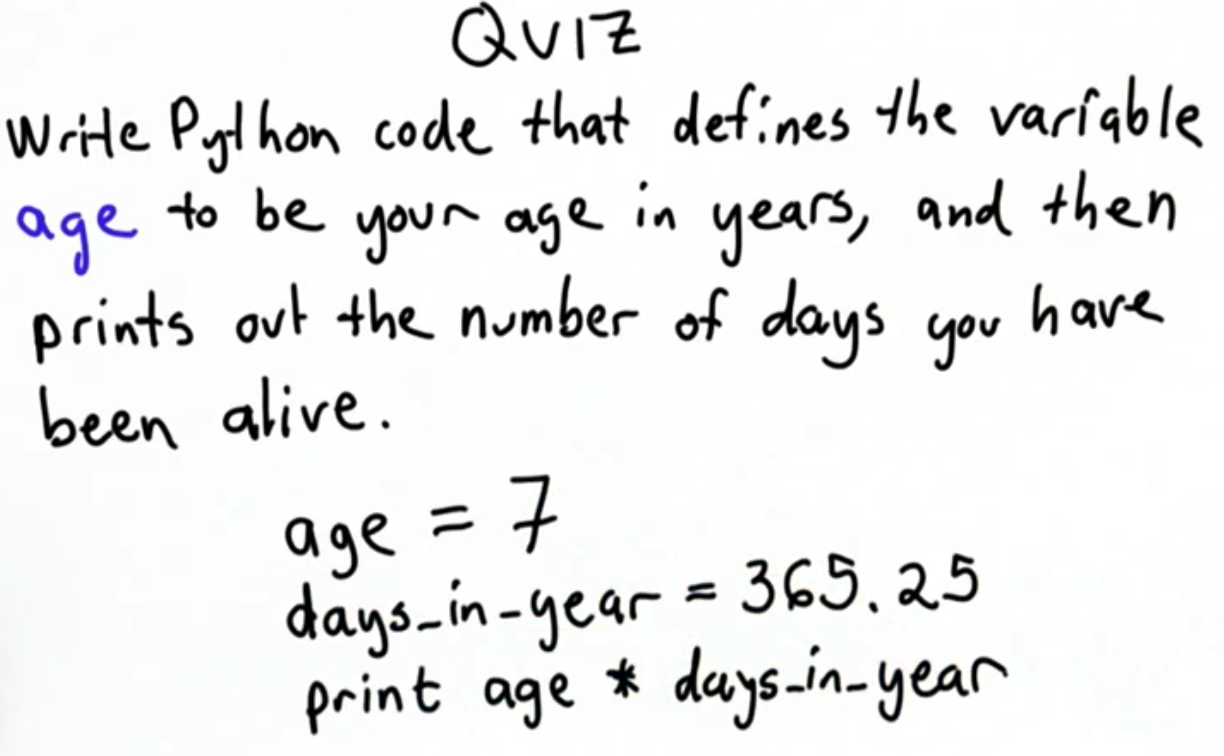 QUIZ
Write Python code that defines the variable
age to be your age in years, and then
prints out the number of days you have
been alive.
age = 7
days_in_year = 365.25
print age * days_in_year